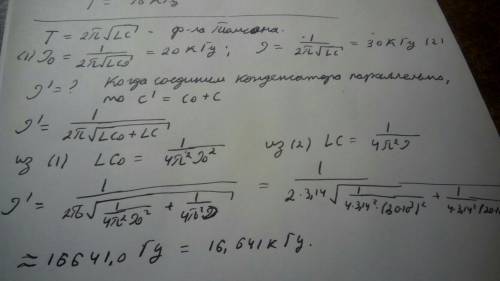 T = 2π√LC - ф-ла Томсона.
(1) ν₀ = 1/(2π√LC₀) = 20 кГц; ν = 1/(2π√LC) = 30 кГц (2)
ν' = ? Когда соединим конденсатора параллельно,
то C' = C₀ + C
ν' = 1/(2π√(LC₀ + LC))
из (1) LC₀ = 1/(4π²ν₀²) из (2) LC = 1/(4π²ν
ν' = 1/(2π√(1/(4π²ν₀²) + 1/(4π²ν))) = 1/(2·3,14√(1/(4·3,14²·(30·10³)²) + 1/(4·3,14²(20·10
≈ 16641,0 Гц = 16,641 кГц.